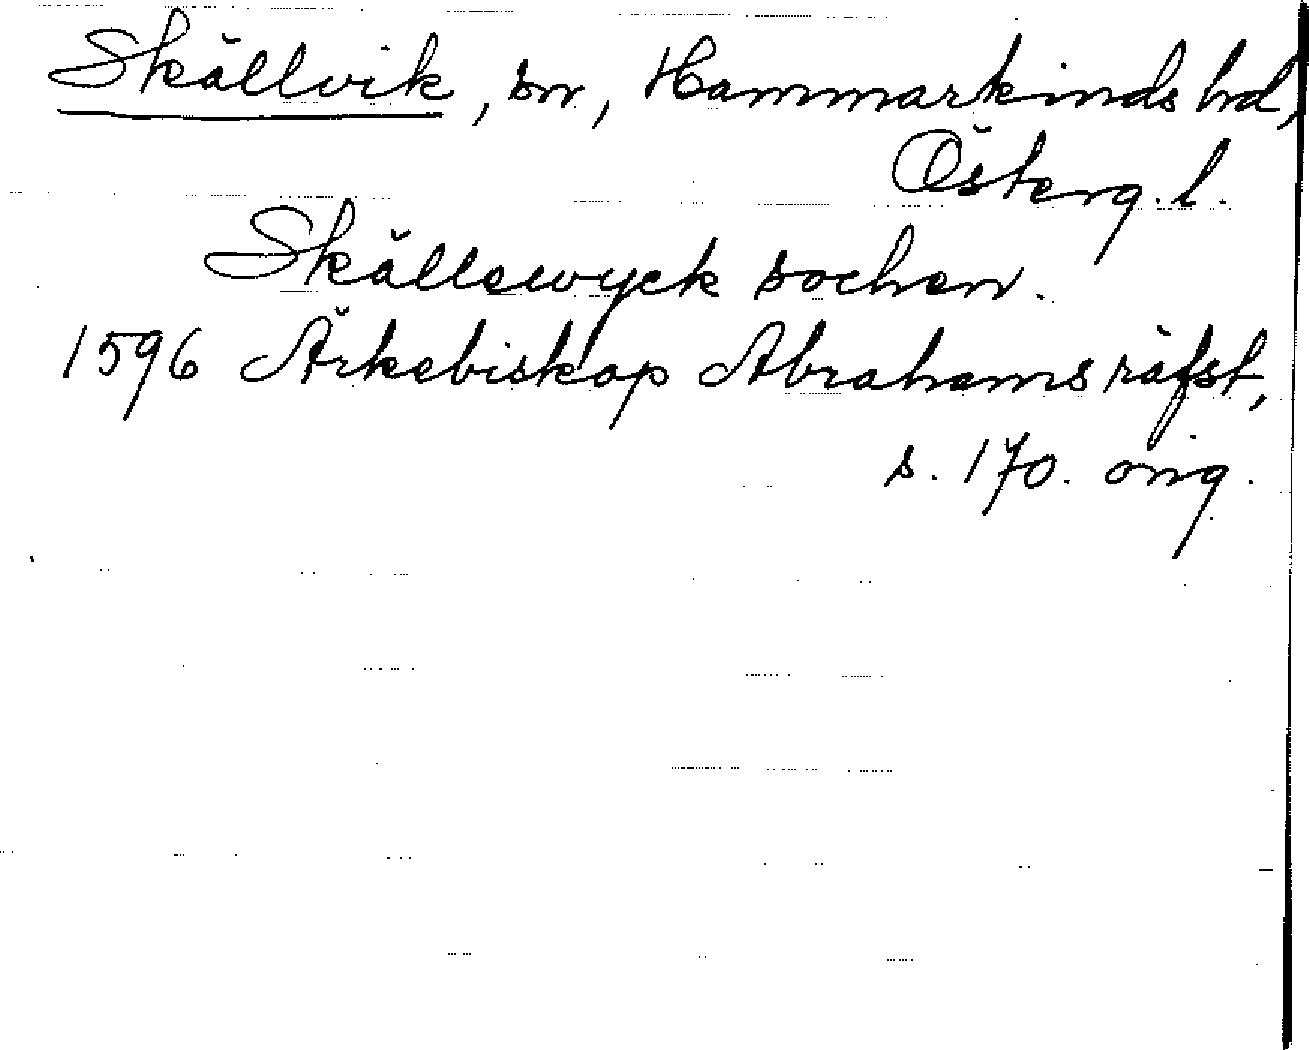 Skällvik, sn, Hammarkinds hd,
Österg. l.
Skällewyck sochen.
1596 Ärkebiskop Abrahams räfst,
s. 170. orig.